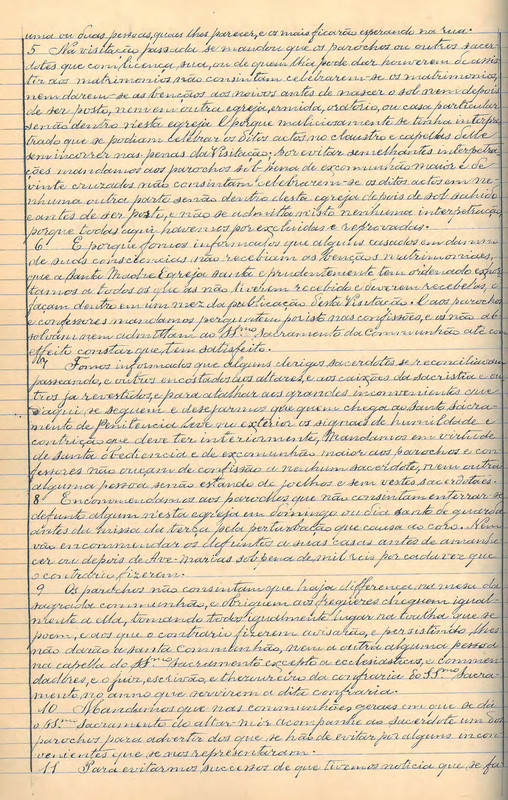 uma ou duas pessoas, quaes lhes parecer, e os mais ficarão esperando na rua.
5 Na visitação passada se mandou que os parochos ou outros sacer-
dotes que com licença sua, ou de quem lh'a pode dar houverem de assis-
tir aos matrimonios não consintam celebrarem-se os matrimonios,
nem darem-se as bençãos aos noivos antes de nascer o sol nem depois
de ser posto, nem em outra egreja, ermida, oratorio, ou casa particular
senão dentro nesta egreja. E porque maliciosamente se tinha interpe-
trado que se podiam celebrar os ditos actos no claustro e capellas delle
sem incorrer nas penas da Visitação; por evitar semelhantes interpetra-
ções mandamos aos parochos sob pena de excommunhão maior e de
vinte cruzados não consintam celebrarem-se os ditos actos em ne-
nhuma outra parte senão dentro desta egreja depois de sol sahido
e antes de ser posto, e não se admitta nisto nenhuma interpetração,
porque todas aqui havemos por excluidas e reprovadas.
6 E porque fomos informados que alguns casados em damno
de suas consciencias não recebiam as bençãos matrimoniaes,
que a Santa Madre Egreja santa e prudentemente tem ordenado exhor-
tamos a todos os que as não tiverem recebido e deverem recebel-as, o
façam dentro em um mez da publicação desta Visitação. E aos parochos
e confessores mandamos perguntem por isto nas confissões, e os não ab-
solvam nem admittam ao SSmo Sacramento da Communhão até com
effeito constar que tem satisfeito.
7 Fomos informados que alguns clerigos sacerdotes se reconciliavam
passeando, e outros encostados aos altares, e aos caixões da sacristia e ou-
tros ja revestidos, e para atalhar aos grandes inconvenientes que
d'aqui se seguem e desejarmos que quem chega ao santo sacra-
mento de Penitencia leve no exterior os signaes de humildade e
contrição que deve ter interiormente, Mandamos em virtude
de santa obediencia e de excommunhão maior aos parochos e con-
fessores não ouçam de confissão a nenhum sacerdote, nem outra
alguma pessoa senão estando de joelhos e sem vestes sacerdotaes.
8 Encommendamos aos parochos que não consintam enterrar-se
defunto algum n'esta egreja em domingo ou dia santo de guarda
antes da missa da terça pela perturbação que causa ao coro. Nem
vão encommendar os defuntos a suas casas antes de amanhe-
cer ou depois de Ave-Marias sob pena de mil reis por cada vez que
o contrario fizerem.
9 Os parochos não consintam que haja differença na mesa da
sagrada communhão, e obriguem aos freguezes cheguem igual-
mente a ella, tomando todos igualmente lugar na toalha que se
poem, e aos que o contrario fizerem avisarão, e persistindo, lhes
não darão a santa Communhão, nem a outra alguma pessoa
na capella do SSmo Sacramento excepto a ecclesiasticos, e commen-
dadores, e o juiz, escrivão, e thesoureiro da confraria do SSmo Sacra-
mento, no anno que servirem a dita confraria.
10 Mandamos que nas communhões geraes em que se dá
o SSmo Sacramento do altar-mór acompanhe ao sacerdote um dos
parochos, para advertir dos que se hão de evitar por alguns incon-
venientes que se nos representaram.
11 Para evitarmos successos de que tivemos noticia que se fa